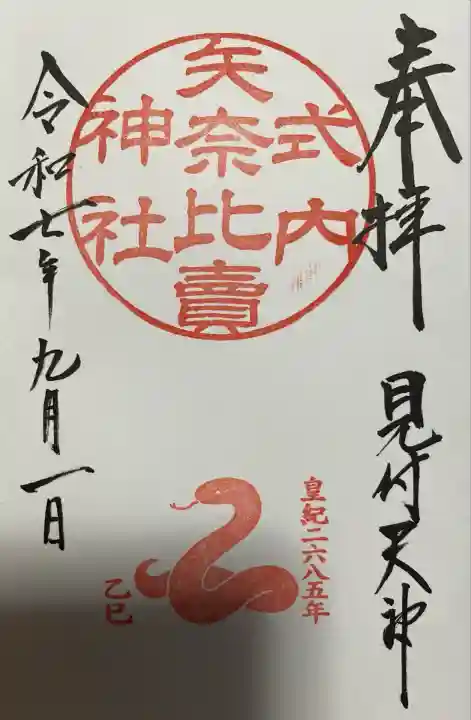 奉拝
見付天神
式内
矢奈比賣
神社
皇紀二六八五年
乙巳
令和七年九月一日